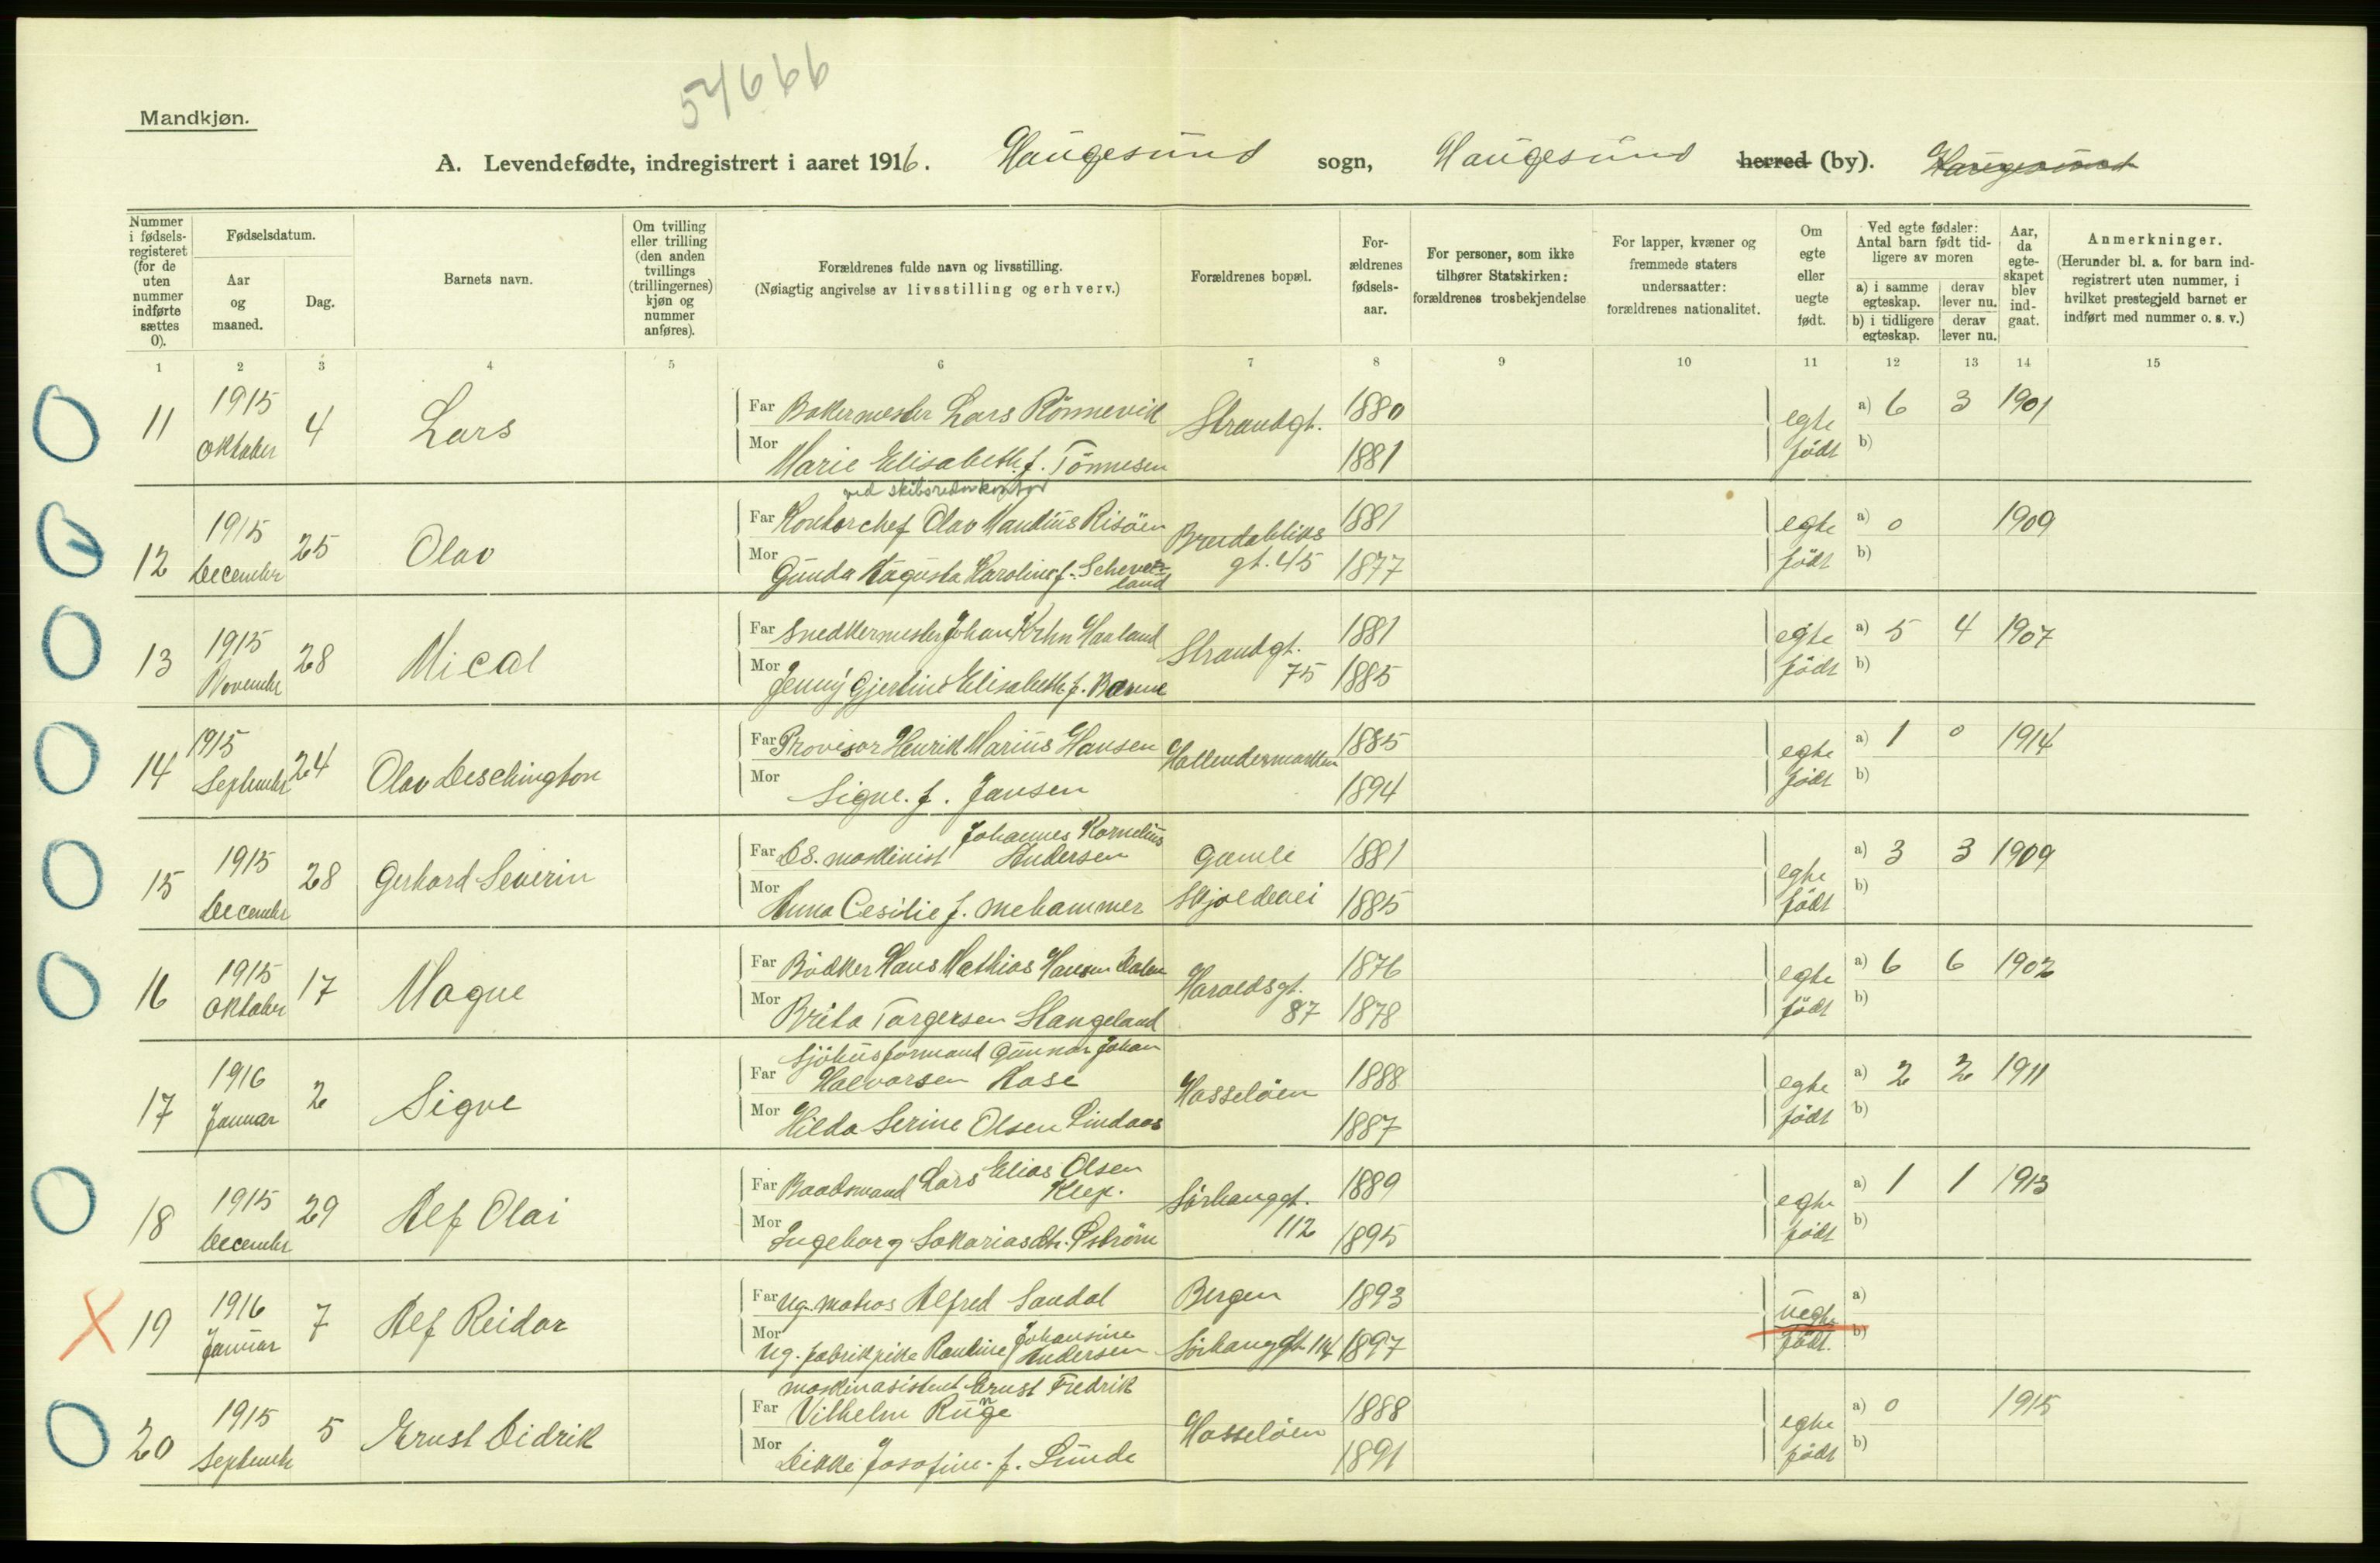 54666
Mandkjøn.
A. Levendefødte, indregistrert i aaret 1916. Haugesund sogn, Haugesund herred (by). Haugesund
Nummer i fødselsregisteret (for de uten nummer indførte sættes 0).
Fødselsdatum.
Aar og maaned.
Dag.
Barnets navn.
Om tvilling eller trilling (den anden tvillings (trillingernes) kjøn og nummer anføres).
Forældrenes fulde navn og livsstilling.
(Nøiagtig angivelse av livsstilling og erhverv.)
Forældrenes bopæl.
Forældrenes fødselsaar.
For personer, som ikke tilhører Statskirken: forældrenes trosbekjendelse
For lapper, kvæner og fremmede staters undersaatter: forældrenes nationalitet.
Om egte eller uegte født.
Ved egte fødsler: Antal barn født tidligere av moren
a) i samme egteskap.
derav lever nu.
b) i tidligere egteskap.
derav lever nu.
Aar, da egteskapet blev indgaat.
Anmerkninger.
(Herunder bl. a. for barn indregistrert uten nummer, i hvilket prestegjeld barnet er indført med nummer o. s. v.)
1 2 3 4 5 6 7 8 9 10 11 12 13 14 15
11 1915 Oktober 4 Lars
Far Bakermester Lars Rönnevik Strandgt. 1880 egte født a) 6 3 1901
Mor Marie Elisabeth f. Tönnesen 1881 b)
ved skibsrederkontor
12 1915 December 25 Olav
Far Kontorchef Olav Maudius Risöen Breidabliks 1881 egte født a) 0 1909
Mor Gunda Augusta Karoline f. Scheveland gt. 45 1877 b)
13 1915 November 28 Mical
Far Snedkermester Johan Krhn Haaland Strandgt. 1881 egte født a) 5 4 1907
Mor Jenny Gjertine Elisabeth f. 75 1885 b)
14 1915 September 24 Olav Deschington
Far Provisor Henrik Marius Hansen 1885 egte født a) 1 0 1914
Mor Signe f. Jansen 1894 b)
15 1915 December 28 Gerhard Severin
Far DS. maskinist Johannes Kornelius Andersen Gamle 1881 egte født a) 3 3 1909
Mor Anna Cesilie f. Mehammer Skjoldevei 1885 b)
16 1915 Oktober 17 Magne
Far Bödker Hans Mathias Hansen Dalen Haraldsgt. 1876 egte født a) 6 6 1902
Mor Brita Torgersen Stangeland 87 1878 b)
17 1916 Januar 2 Sigve
Far Sjöhusformand Gunnar Johan Halvorsen Aase Hasselöen 1888 egte født a) 2 2 1911
Mor Hilda Serine Olsen Lindaas 1887 b)
18 1915 December 29 Alf Olai
Far Baadsmand Lars Elias Olsen Klep. Sörhauggt. 1889 egte født a) 1 1 1913
Mor Ingeborg Sakariasdtr. Østrøm 112 1895 b)
19 1916 Januar 7 Alf Reidar
Far Ug. matros Alfred Sandal Bergen 1893 uegte født. a)
Mor Ug. fabrikpike Pauline Johansine Andersen Sörhauggt 114 1897 b)
20 1915 September 5 Ernst Didrik
Far maskinasistent Ernst Fredrik Vilhelm Runge Hasselöen 1888 egte født a) 0 1915
Mor Dikke Josofine f. Lunde 1891 b)